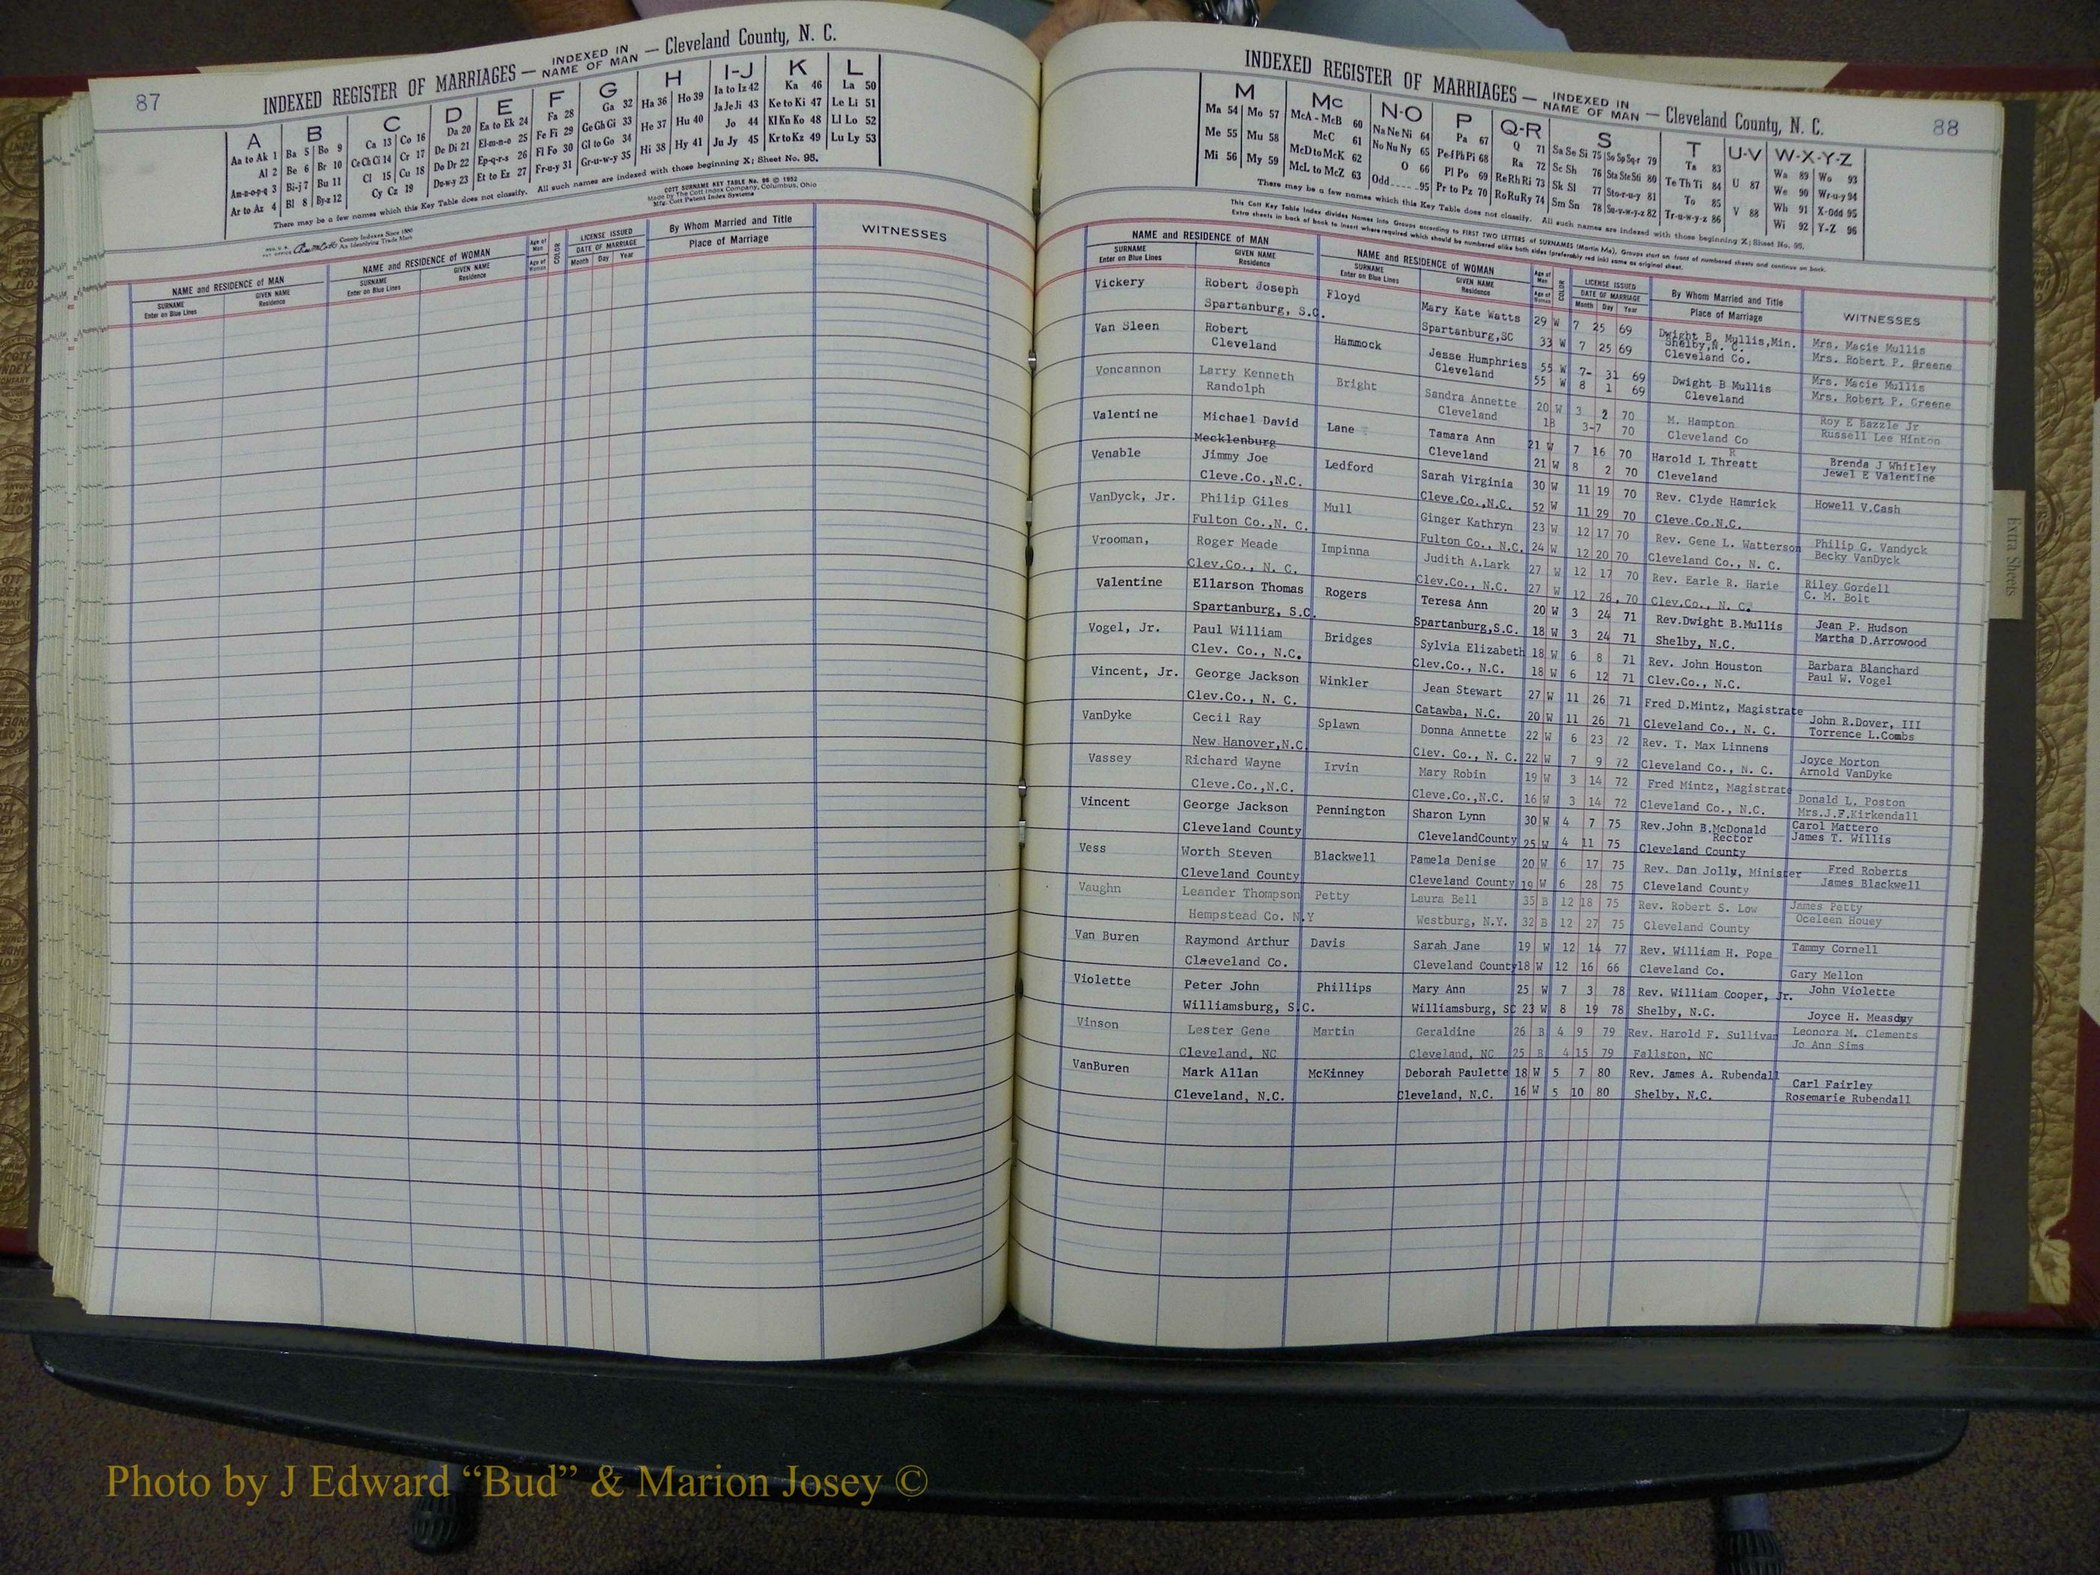 87
INDEXED REGISTER OF MARRIAGES — INDEXED IN NAME OF MAN — Cleveland County, N. C.
A B C D E F G H I-J K L
Aa to Ak 1 Ba 5 Bo 9 Ca 13 Co 16 Da 20 Ea to Ek 24 Fa 28 Ga 32 Ha 36 Ho 39 Ia to Iz 42 Ka 46 La 50
Al 2 Be 6 Br 10 Ce Ch Ci 14 Cr 17 De Di 21 El-m-n-o 25 Fe Fi 29 Ge Gh Gi 33 He 37 Hu 40 Ja Je Ji 43 Ke to Ki 47 Le Li 51
An-o-p-q 3 Bi-j 7 Bu 11 Cl 15 Cu 18 Do Dr 22 Ep-q-r-s 26 Fl Fo 30 Gl to Go 34 Hi 38 Hy 41 Jo 44 Kl Kn Ko 48 Ll Lo 52
Ar to Az 4 Bl 8 By-z 12 Cy Cz 19 Du-w-y 23 Et to Ez 27 Fr-u-y 31 Gr-u-w-y 35 Ju Jy 45 Kr to Kz 49 Lu Ly 53
There may be a few names which this Key Table does not classify. All such names are indexed with those beginning X; Sheet No. 95.
COTT SURNAME KEY TABLE No. 96 © 1952
Made by The Cott Index Company, Columbus, Ohio
Mfg. Cott Patent Index Systems
County Indexes Since 1888
An Identifying Trade Mark
NAME and RESIDENCE OF MAN NAME and RESIDENCE OF WOMAN Age of Man Age of Woman COLOR LICENSE ISSUED DATE OF MARRIAGE By Whom Married and Title WITNESSES
SURNAME Enter on Blue Lines GIVEN NAME Residence SURNAME Enter on Blue Lines GIVEN NAME Residence Month Day Year Place of Marriage
88
INDEXED REGISTER OF MARRIAGES — INDEXED IN NAME OF MAN — Cleveland County, N. C.
M Mc N-O P Q-R S T U-V W-X-Y-Z
Ma 54 Mo 57 McA - McB 60 Na Ne Ni 64 Pa 67 Q 71 Sa Se Si 75 So Sp Sq-r 79 Ta 83 Wa 89 Wo 93
Me 55 Mu 58 McC 61 No Nu Ny 65 Pe-f Ph Pi 68 Ra 72 Sc Sh 76 Sta Ste Sti 80 Te Th Ti 84 U 87 We 90 Wr-u-y 94
Mi 56 My 59 McD to McK 62 O 66 Pl Po 69 Re Rh Ri 73 Sk Sl 77 Sto-r-u-y 81 To 85 Wh 91 X-Odd 95
McL to McZ 63 Odd 95 Pr to Pz 70 Ro Ru Ry 74 Sm Sn 78 Su-v-w-y-z 82 Tr-u-w-y-z 86 V 88 Wi 92 Y-Z 96
There may be a few names which this Key Table does not classify. All such names are indexed with those beginning X; Sheet No. 95.
This Cott Key Table Index divides Names into Groups according to FIRST TWO LETTERS of SURNAMES (Martin Ma). Groups start on front of numbered sheets and continue on back.
Extra sheets in back of book to insert where required which should be numbered alike both sides (preferably red ink) same as original sheet.
NAME and RESIDENCE OF MAN NAME and RESIDENCE OF WOMAN Age of Man Age of Woman COLOR LICENSE ISSUED DATE OF MARRIAGE By Whom Married and Title WITNESSES
SURNAME Enter on Blue Lines GIVEN NAME Residence SURNAME Enter on Blue Lines GIVEN NAME Residence Month Day Year Place of Marriage
Vickery Robert Joseph Floyd Mary Kate Watts 29 W 7 25 69 Dwight B. Mullis, Min. Mrs. Macie Mullis
Spartanburg, S.C. Spartanburg,SC 33 W 7 25 69 Shelby,N. C. Cleveland Co. Mrs. Robert P. Greene
Van Sleen Robert Hammock Jesse Humphries 55 W 7- 31 69 Dwight B Mullis Mrs. Macie Mullis
Cleveland Cleveland 55 W 8 1 69 Cleveland Mrs. Robert P. Greene
Voncannon Larry Kenneth Bright Sandra Annette 20 W 3 2 70 M. Hampton Roy E Bazzle Jr
Randolph Cleveland 18 3-7 70 Cleveland Co Russell Lee Hinton
Valentine Michael David Lane Tamara Ann 21 W 7 16 70 Harold L Threatt Brenda J Whitley
Mecklenburg Cleveland 21 W 8 2 70 Cleveland Jewel E Valentine
Venable Jimmy Joe Ledford Sarah Virginia 30 W 11 19 70 Rev. Clyde Hamrick Howell V.Cash
Cleve.Co.,N.C. Cleve.Co.,N.C. 52 W 11 29 70 Cleve.Co.N.C.
VanDyck, Jr. Philip Giles Mull Ginger Kathryn 23 W 12 17 70 Rev. Gene L. Watterson Philip G. Vandyck
Fulton Co.,N. C. Fulton Co., N.C. 24 W 12 20 70 Cleveland Co., N. C. Becky VanDyck
Vrooman, Roger Meade Impinna Judith A.Lark 27 W 12 17 70 Rev. Earle R. Harie Riley Gordell
Clev.Co., N. C. Clev.Co., N.C. 27 W 12 26, 70 Clev.Co., N. C. C. M. Bolt
Valentine Ellarson Thomas Rogers Teresa Ann 20 W 3 24 71 Rev.Dwight B.Mullis Jean P. Hudson
Spartanburg, S.C. Spartanburg,S.C. 18 W 3 24 71 Shelby, N.C. Martha D.Arrowood
Vogel, Jr. Paul William Bridges Sylvia Elizabeth 18 W 6 8 71 Rev. John Houston Barbara Blanchard
Clev. Co., N.C. Clev.Co., N.C. 18 W 6 12 71 Clev.Co., N.C. Paul W. Vogel
Vincent, Jr. George Jackson Winkler Jean Stewart 27 W 11 26 71 Fred D.Mintz, Magistrate John R.Dover, III
Clev.Co., N. C. Catawba, N.C. 20 W 11 26 71 Cleveland Co., N. C. Torrence L.Combs
VanDyke Cecil Ray Splawn Donna Annette 22 W 6 23 72 Rev. T. Max Linnens Joyce Morton
New Hanover,N.C. Clev. Co., N. C. 22 W 7 9 72 Cleveland Co., N. C. Arnold VanDyke
Vassey Richard Wayne Irvin Mary Robin 19 W 3 14 72 Fred Mintz, Magistrate Donald L. Poston
Cleve.Co.,N.C. Cleve.Co.,N.C. 16 W 3 14 72 Cleveland Co., N.C. Mrs.J.F.Kirkendall
Vincent George Jackson Pennington Sharon Lynn 30 W 4 7 75 Rev.John B.McDonald Rector Carol Mattero
Cleveland County ClevelandCounty 25 W 4 11 75 Cleveland County James T. Willis
Vess Worth Steven Blackwell Pamela Denise 20 W 6 17 75 Rev. Dan Jolly, Minister Fred Roberts
Cleveland County Cleveland County 19 W 6 28 75 Cleveland County James Blackwell
Vaughn Leander Thompson Petty Laura Bell 35 B 12 18 75 Rev. Robert S. Low James Petty
Hempstead Co. N.Y Westburg, N.Y. 32 B 12 27 75 Cleveland County Oceleen Houey
Van Buren Raymond Arthur Davis Sarah Jane 19 W 12 14 77 Rev. William H. Pope Tammy Cornell
Claeveland Co. Cleveland County 18 W 12 16 66 Cleveland Co. Gary Mellon
Violette Peter John Phillips Mary Ann 25 W 7 3 78 Rev. William Cooper, Jr. John Violette
Williamsburg, S.C. Williamsburg, SC 23 W 8 19 78 Shelby, N.C. Joyce H.
Vinson Lester Gene Martin Geraldine 26 B 4 9 79 Rev. Harold F. Sullivan Leonora M. Clements
Cleveland, NC Cleveland, NC 25 B 4 15 79 Fallston, NC Jo Ann Sims
VanBuren Mark Allan McKinney Deborah Paulette 18 W 5 7 80 Rev. James A. Rubendall Carl Fairley
Cleveland, N.C. Cleveland, N.C. 16 W 5 10 80 Shelby, N.C. Rosemarie Rubendall
Extra Sheets
Photo by J Edward “Bud” & Marion Josey ©